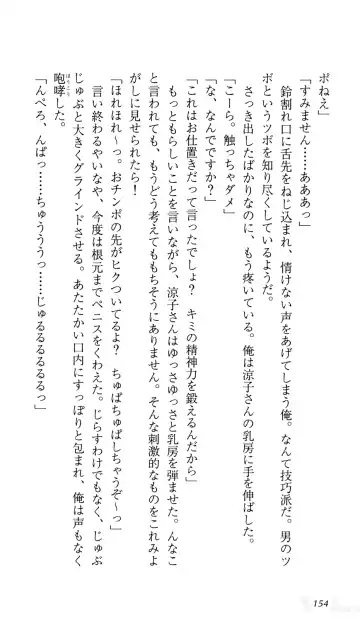 ポねえ」
「すみません……あああっ」
鈴割れ口に舌先をねじ込まれ、情けない声をあげてしまう俺。なんて技巧派だ。男のツ
ボというツボを知り尽くしているようだ。
さっき出したばかりなのに、もう疼いている。俺は涼子さんの乳房に手を伸ばした。
「こーら。触っちゃダメ」
「な、なんでですか?」
「これはお仕置きだって言ったでしょ? キミの精神力を鍛えるんだから」
もっともらしいことを言いながら、涼子さんはゆっさゆっさと乳房を弾ませた。んなこ
と言われても、もうどう考えてももちそうにありません。そんな刺激的なものをこれみよ
がしに見せられたら!
「ほれほれ~っ。おチンポの先がヒクついてるよ? ちゅぱちゅぱしちゃうぞ~っ」
言い終わるやいなや、今度は根元までペニスをくわえた。じらすわけでもなく、じゅぶ
じゅぶと大きくグラインドさせる。あたたかい口内にすっぽりと包まれ、俺は声もなく
ほうこう
咆哮した。
「んぺろ、んぱっ……ちゅううっ……じゅるるるるるっ」
154